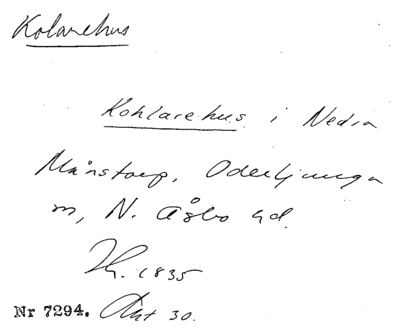 Kolarehus
Kohlarehus i Nedra
Månstorp, Oderljunga
sn, N. Åsbo hd.
1835
Nr 7294. Akt 30.